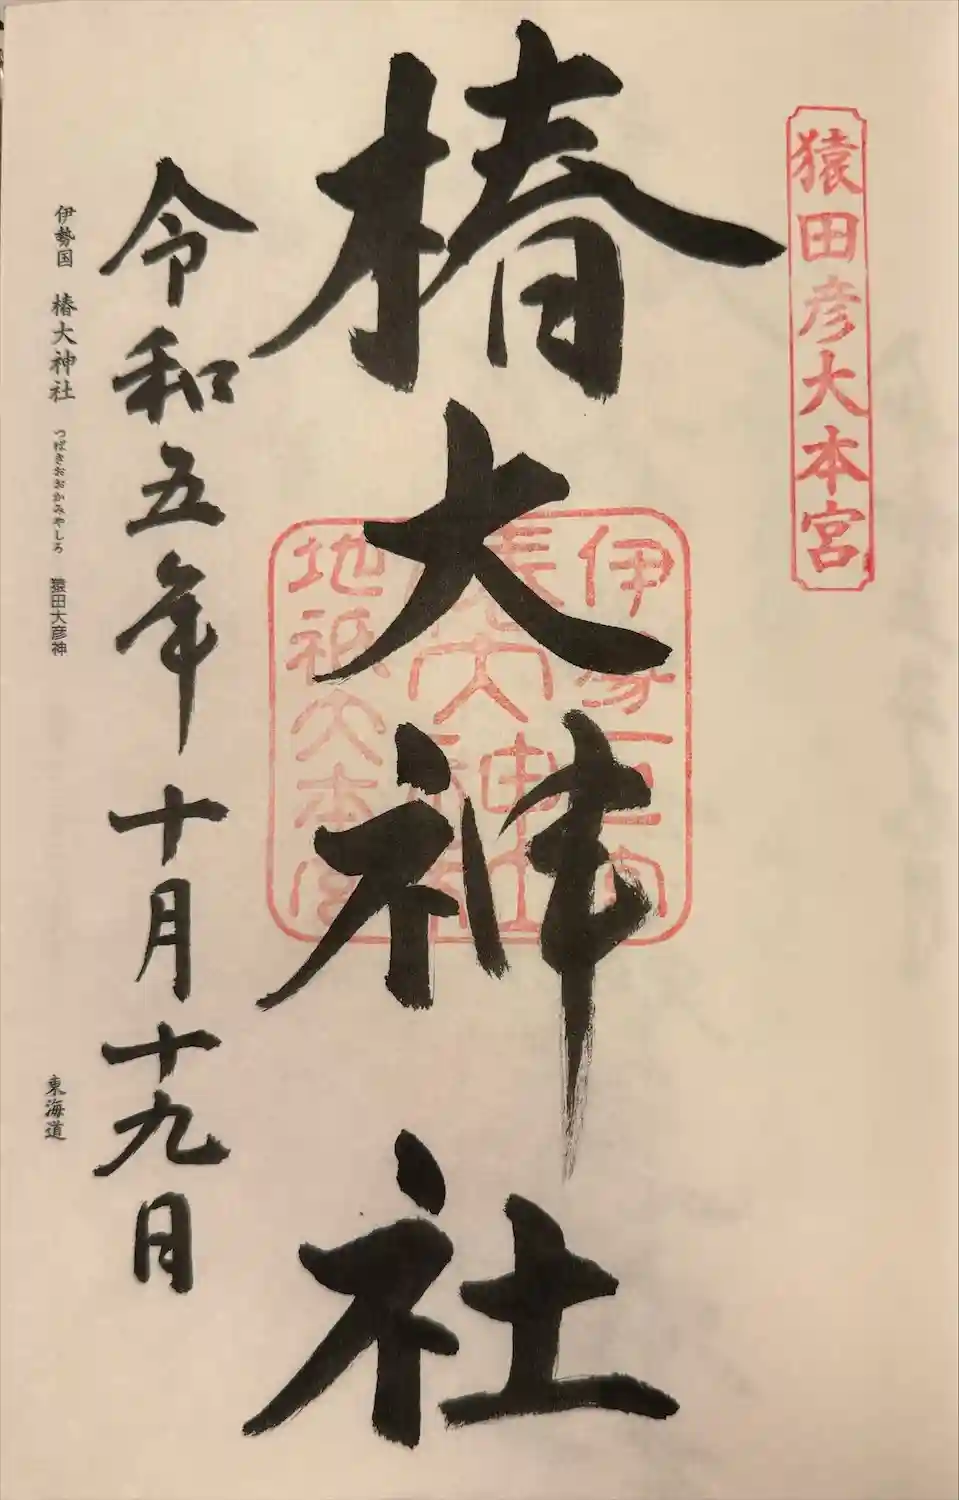 猿田彦大本宮
椿大神社
伊勢一宮
椿大神社
地祇大本宮
令和五年十月十九日
伊勢国 椿大神社 つばきおおかみやしろ 猿田大彦神
東海道